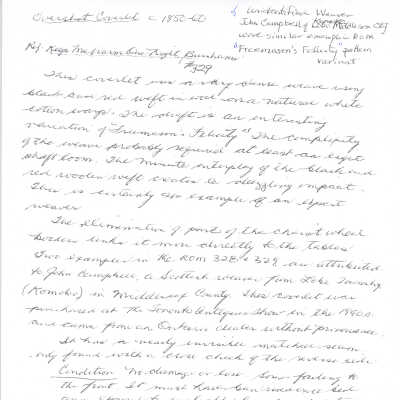 Overshot Coverlet c 1850
Unidentified Weaver
John Campbell of Lobo, Middlesex Cty
wove similar examples ROM
"Freemason's Felicity" pattern
variant
Ref Keep Me Warm One Night, Burnham
#329
This coverlet is a very dense weave using
black and red weft in wool on a natural white
cotton warp. The draft is an interesting
variation of "Freemason's Felicity" The complexity
of the weave probably required at least an eight
shaft loom. The minute interplay of the black and
red woolen weft creates a dazzling impact
This is certainly an example of an expert
weaver
The elimination of part of the chariot wheel
borders links it more directly to the tables
Two examples in the ROM 328 & 329 are attributed
to John Campbell, a Scottish weaver from Lobo Township
(Komoka) in Middlesex County. This coverlet was
purchased at the Toronto Antiques Show in the 1980s
and came from an Ontario dealer without provenance.
It has a nearly invisible matched seam
only found with a close check of the reverse side
Condition No damage or loss Some fading to
the front It must have been